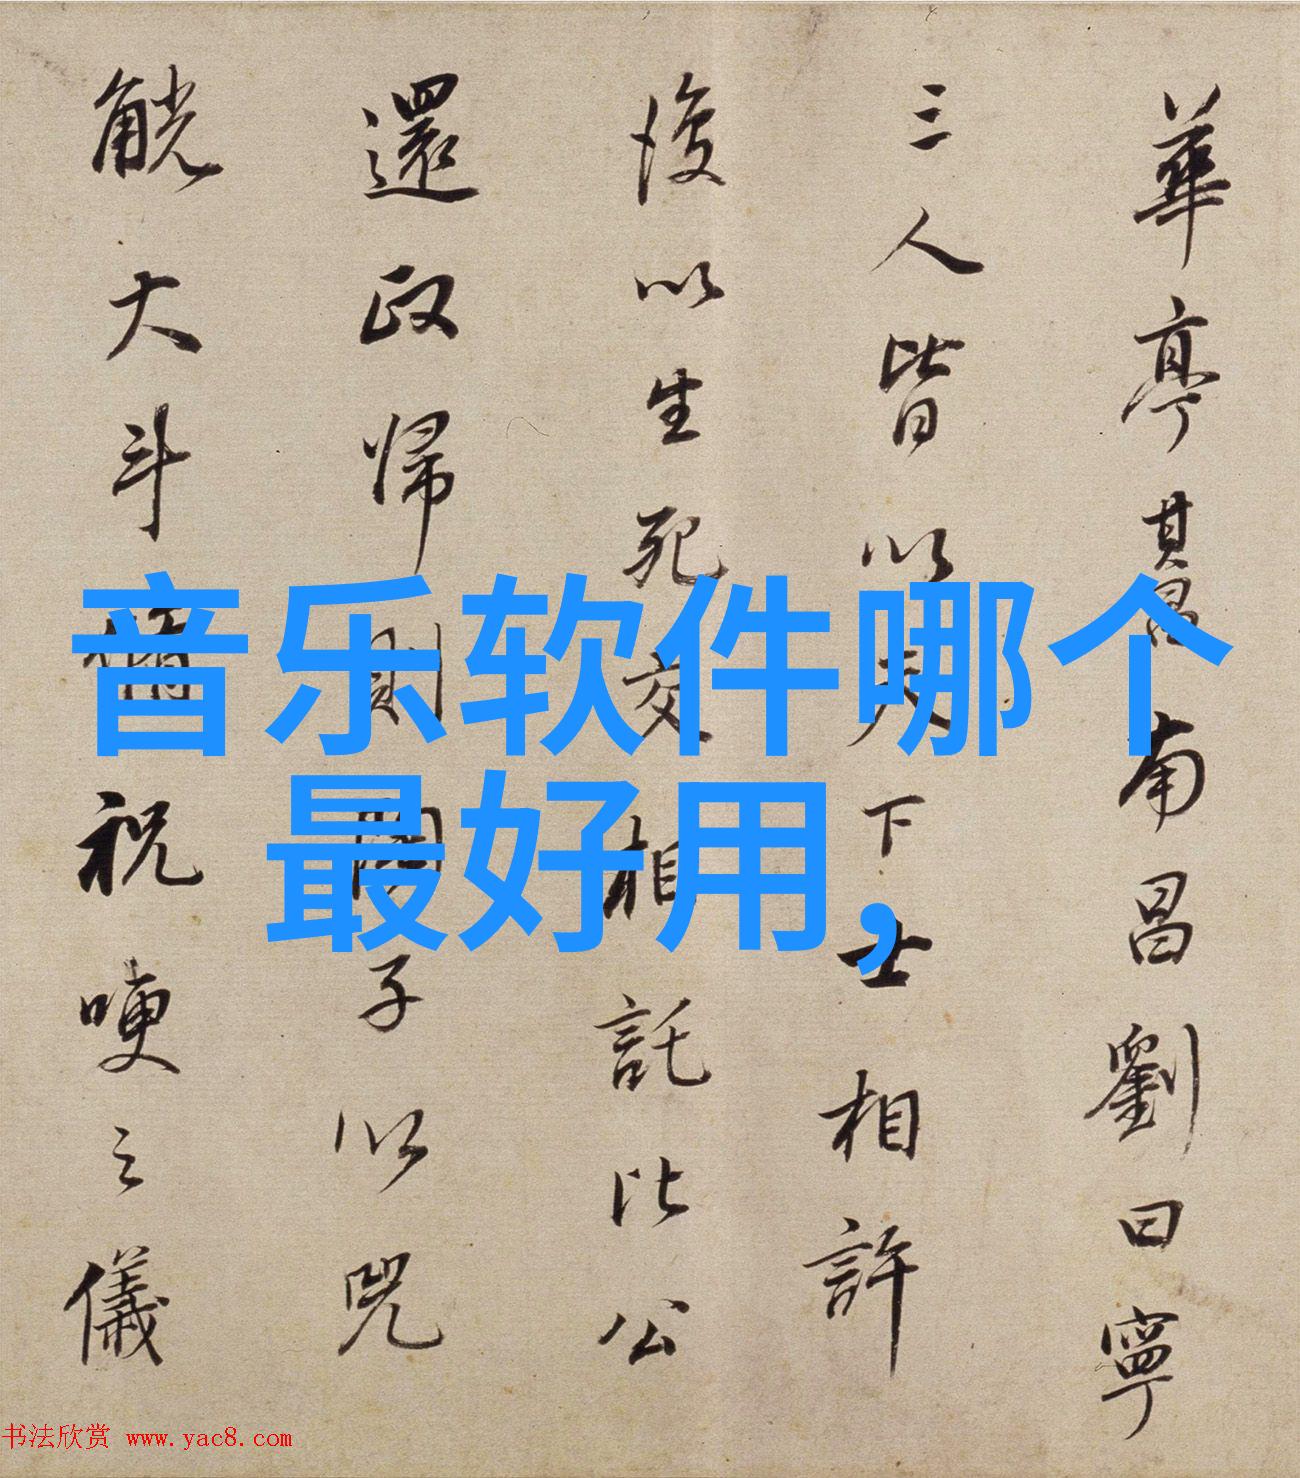 華亭其昌南昌劉曰寧
三人皆以天下士相許
後以生死交相託比公
還政歸則閣子以兕
觥大斗備祝哽之儀
音乐软件哪个
最好用,
书法欣赏 www.yac8.com